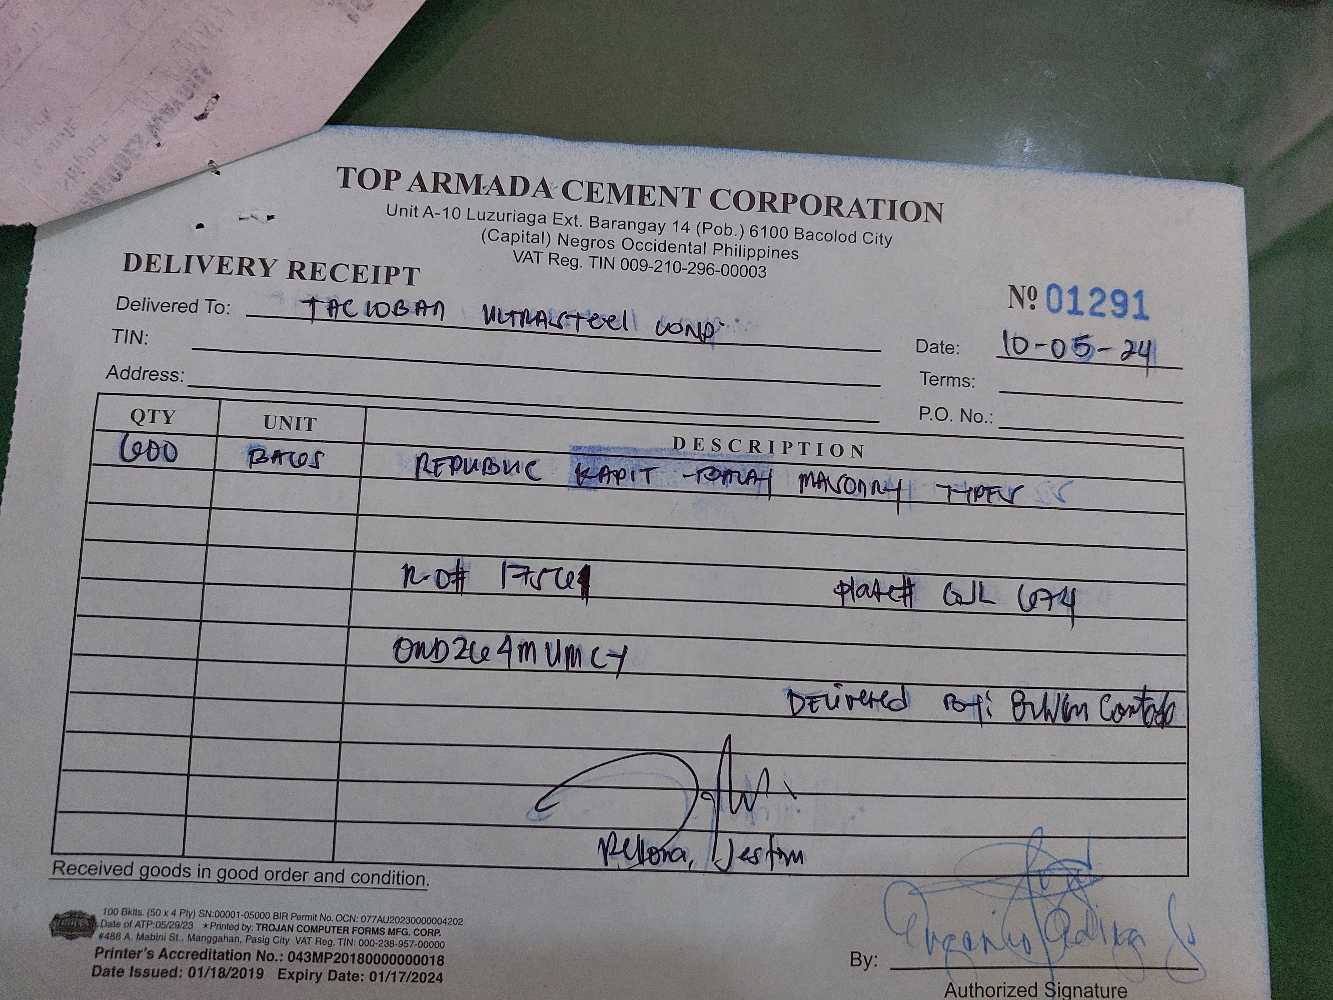 TOP ARMADA CEMENT CORPORATION
Unit A-10 Luzuriaga Ext. Barangay 14 (Pob.) 6100 Bacolod City
(Capital) Negros Occidental Philippines
VAT Reg. TIN 009-210-296-00003
DELIVERY RECEIPT
Nº 01291
Delivered To: TACLOBAN ULTRASTEEL CORP.
Date: 10-05-24
TIN:
Terms:
Address:
P.O. No.:
QTY UNIT DESCRIPTION
600 BAGS REPUBLIC KAPIT-TIBAY MASONRY TYPE S
R.O# 17561
Plate# GJL 674
OND264MUMCY
DELIVERED BY:
Justin
Received goods in good order and condition.
100 Bklts. (50 x 4 Ply) SN:00001-05000 BIR Permit No. OCN: 077AU20230000004202
Date of ATP:05/29/23 *Printed by: TROJAN COMPUTER FORMS MFG. CORP.
#486 A. Mabini St., Manggahan, Pasig City VAT Reg. TIN: 000-238-957-00000
Printer's Accreditation No.: 043MP20180000000018
Date Issued: 01/18/2019 Expiry Date: 01/17/2024
By:
Authorized Signature